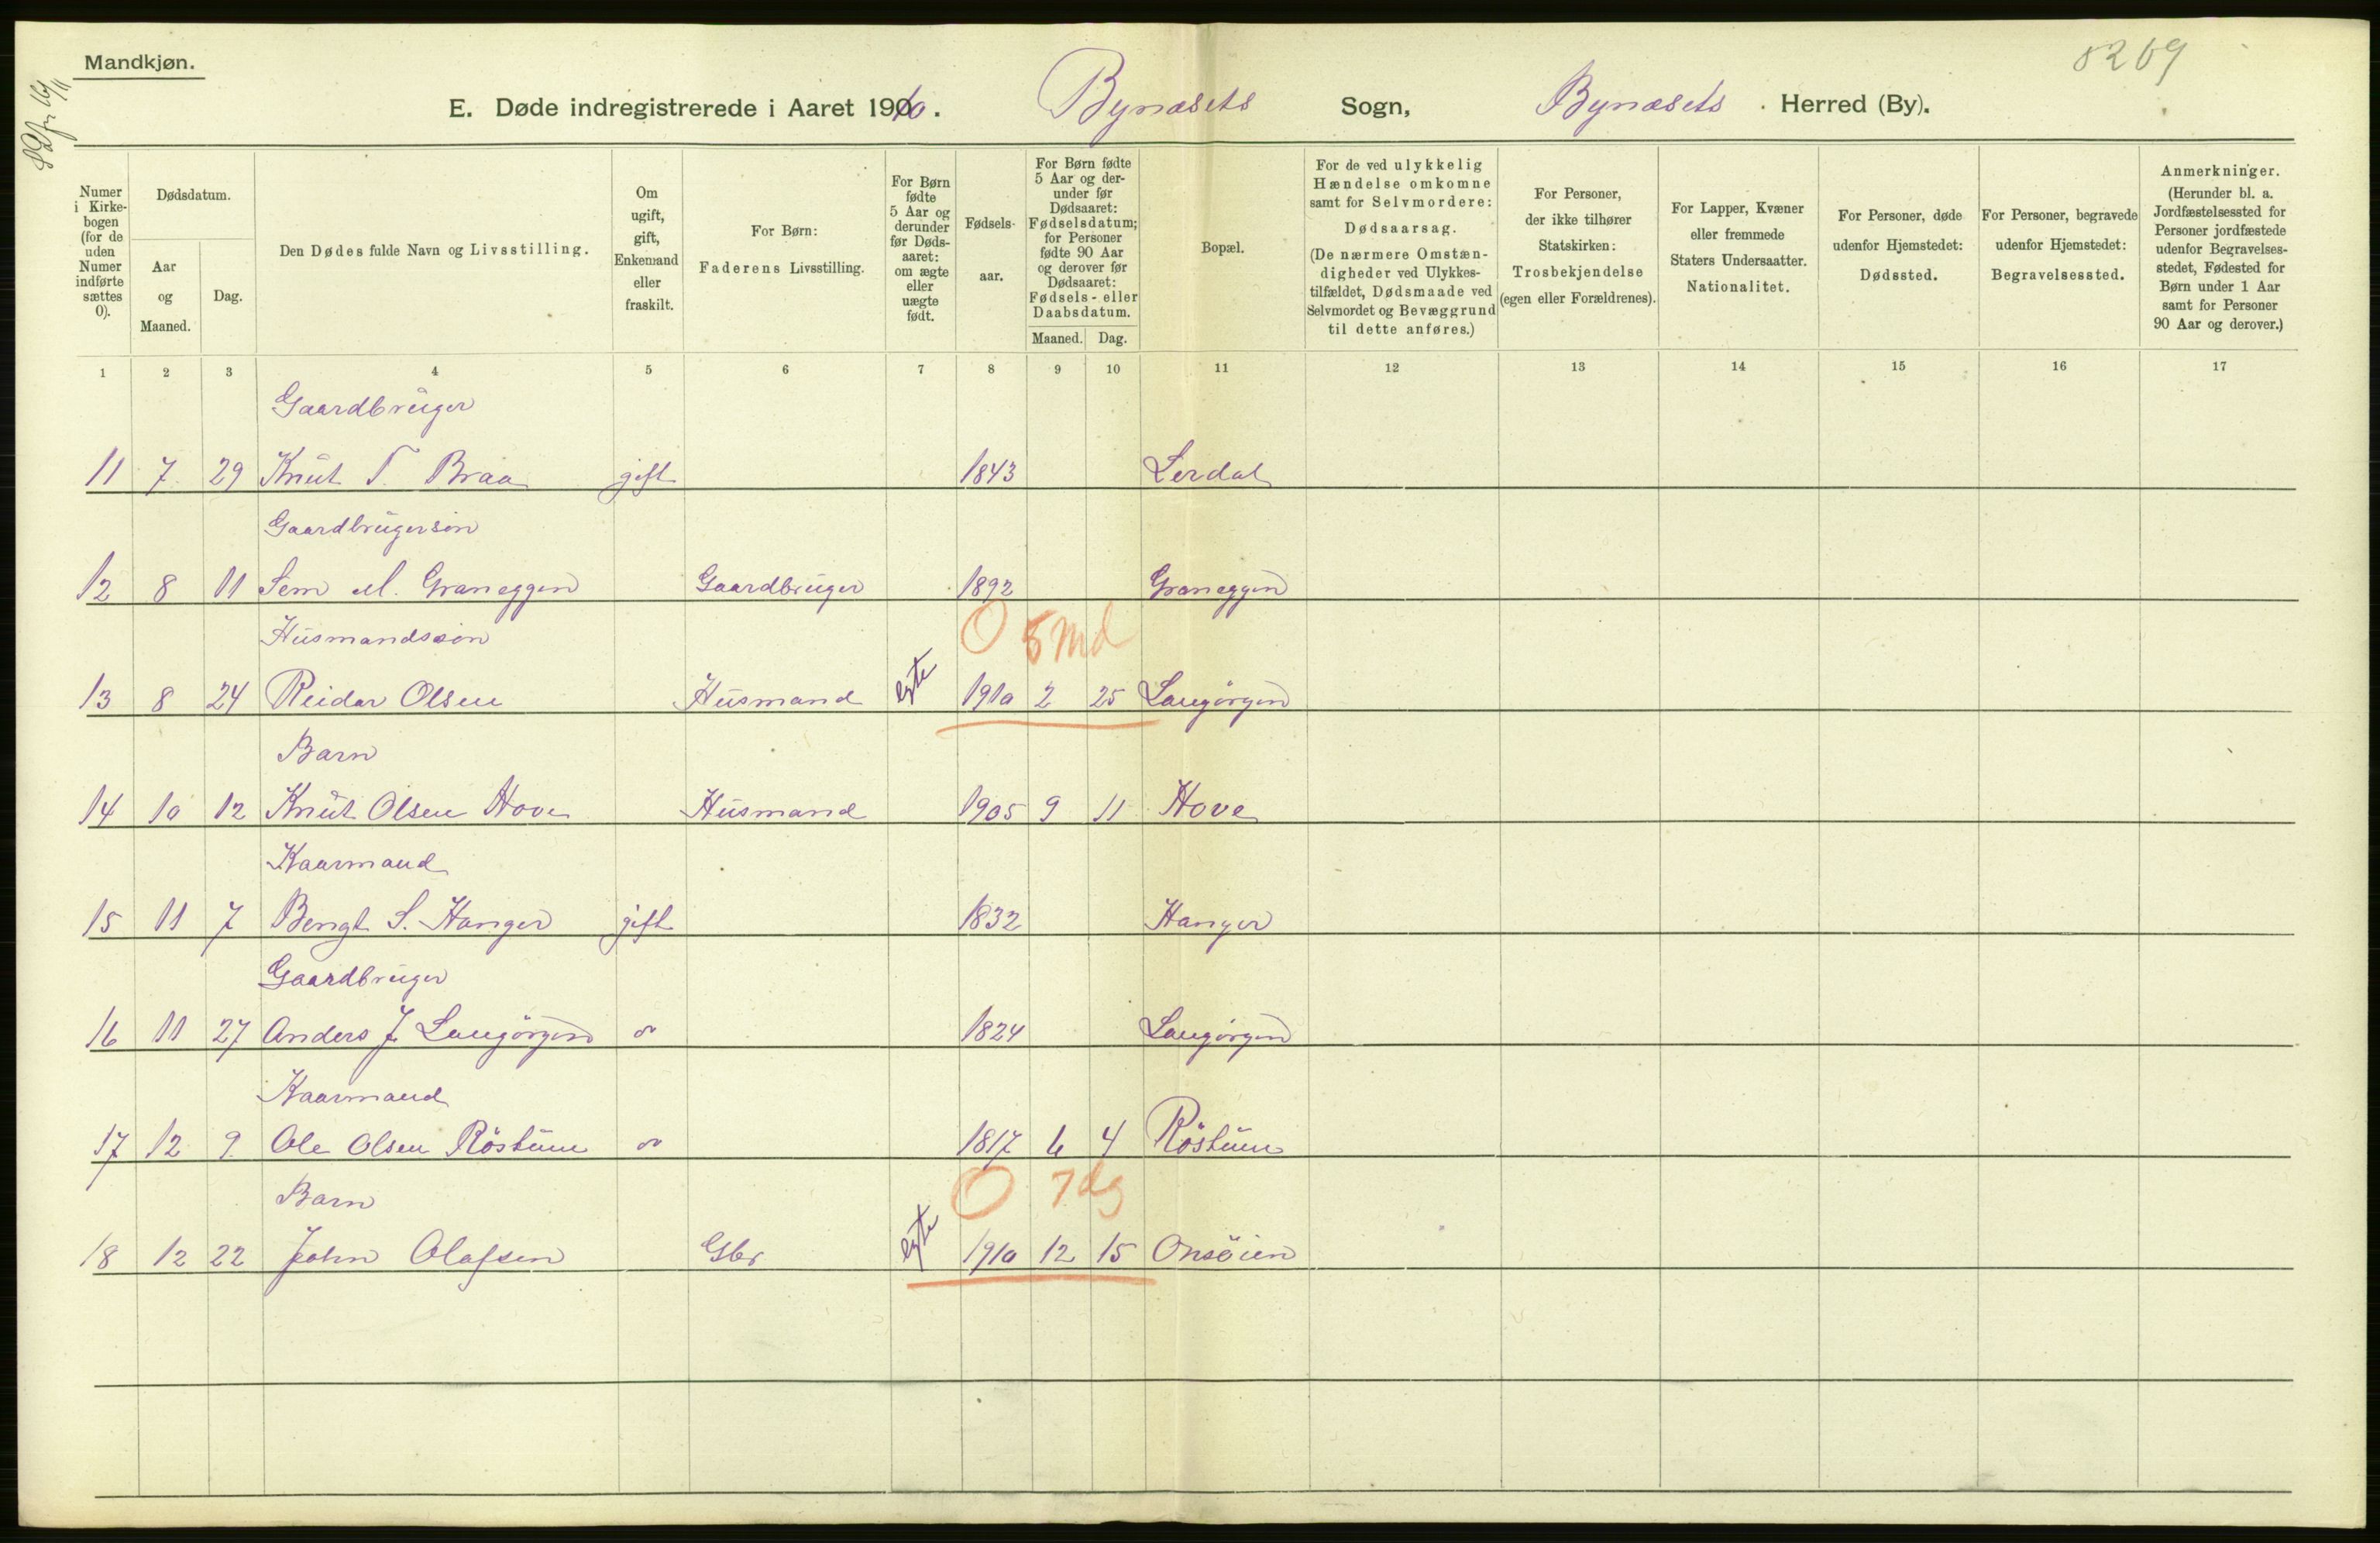 Mandkjøn.
8269
E. Døde indregistrerede i Aaret 1910. Bynæsets Sogn, Bynæsets Herred (By).
Numer i Kirkebogen (for de uden Numer indførte sættes 0).
Dødsdatum.
Aar og Maaned.
Dag.
Den Dødes fulde Navn og Livsstilling.
Om ugift, gift, Enkemand eller fraskilt.
For Børn: Faderens Livsstilling.
For Børn fødte 5 Aar og derunder før Dødsaaret: om ægte eller uægte født.
Fødselsaar.
For Børn fødte 5 Aar og derunder før Dødsaaret: Fødselsdatum; for Personer fødte 90 Aar og derover før Dødsaaret: Fødsels- eller Daabsdatum.
Maaned. Dag.
Bopæl.
For de ved ulykkelig Hændelse omkomne samt for Selvmordere: Dødsaarsag. (De nærmere Omstændigheder ved Ulykkestilfældet, Dødsmaade ved Selvmordet og Bevæggrund til dette anføres.)
For Personer, der ikke tilhører Statskirken: Trosbekjendelse (egen eller Forældrenes).
For Lapper, Kvæner eller fremmede Staters Undersaatter. Nationalitet.
For Personer, døde udenfor Hjemstedet: Dødssted.
For Personer, begravede udenfor Hjemstedet: Begravelsessted.
Anmerkninger. (Herunder bl. a. Jordfæstelsessted for Personer jordfæstede udenfor Begravelsesstedet, Fødested for Børn under 1 Aar samt for Personer 90 Aar og derover.)
1 2 3 4 5 6 7 8 9 10 11 12 13 14 15 16 17
Gaardbruger
11 7 29 Knut T. Braa gift 1843 Lerdal
Gaardbrugersøn
12 8 11 Sem M. Graneggen Gaardbruger 1892 Graneggen
Husmandssøn 0 5 md
13 8 24 Reidar Olsen Husmand egte 1910 2 25 Langörgen
Barn
14 10 12 Knut Olsen Hove Husmand 1905 9 11 Hove
Kaarmand
15 11 7 Bengt S. Hanger gift 1832 Hanger
Gaardbruger
16 11 27 Anders J. Langörgen 1824 Langörgen
Kaarmand
17 12 9 Ole Olsen Röstum 1817 6 4 Röstum
Barn 0 7 dg
18 12 22 John Olafsen Gbr egte 1910 12 15 Onsöien